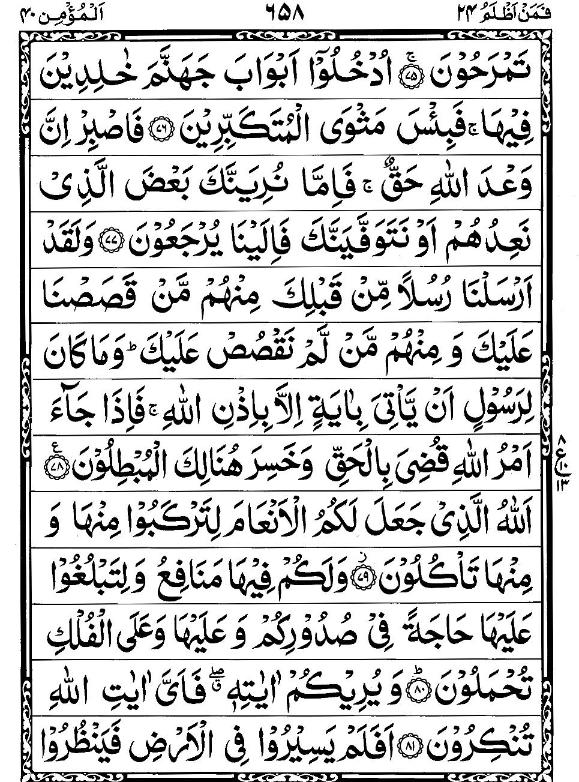 فَمَنْ اَظْلَمُ ٢٤ ٦٥٨ اَلْمُؤْمِن ٤٠
تَمْرَحُوْنَ ۚ۝٧٥ اُدْخُلُوْۤا اَبْوَابَ جَهَنَّمَ خٰلِدِيْنَ
فِيْهَا ۚ فَبِئْسَ مَثْوَى الْمُتَكَبِّرِيْنَ ۝٧٦ فَاصْبِرْ اِنَّ
وَعْدَ اللهِ حَقٌّ ۚ فَاِمَّا نُرِيَنَّكَ بَعْضَ الَّذِىْ
نَعِدُهُمْ اَوْ نَتَوَفَّيَنَّكَ فَاِلَيْنَا يُرْجَعُوْنَ ۝٧٧ وَلَقَدْ
اَرْسَلْنَا رُسُلًا مِّنْ قَبْلِكَ مِنْهُمْ مَّنْ قَصَصْنَا
عَلَيْكَ وَ مِنْهُمْ مَّنْ لَّمْ نَقْصُصْ عَلَيْكَ ؕ وَمَا كَانَ
لِرَسُوْلٍ اَنْ يَّاْتِىَ بِاٰيَةٍ اِلَّا بِاِذْنِ اللهِ ۚ فَاِذَا جَآءَ
اَمْرُ اللهِ قُضِىَ بِالْحَقِّ وَخَسِرَ هُنَالِكَ الْمُبْطِلُوْنَ ۝٧٨ ع
٨ ع ١٠ ١٣
اَللهُ الَّذِىْ جَعَلَ لَكُمُ الْاَنْعَامَ لِتَرْكَبُوْا مِنْهَا وَ
مِنْهَا تَاْكُلُوْنَ ۝٧٩ ز وَلَكُمْ فِيْهَا مَنَافِعُ وَلِتَبْلُغُوْا
عَلَيْهَا حَاجَةً فِىْ صُدُوْرِكُمْ وَ عَلَيْهَا وَعَلَى الْفُلْكِ
تُحْمَلُوْنَ ؕ۝٨٠ وَ يُرِيْكُمْ اٰيٰتِهٖ ۖق فَاَىَّ اٰيٰتِ اللهِ
تُنْكِرُوْنَ ۝٨١ اَفَلَمْ يَسِيْرُوْا فِى الْاَرْضِ فَيَنْظُرُوْا